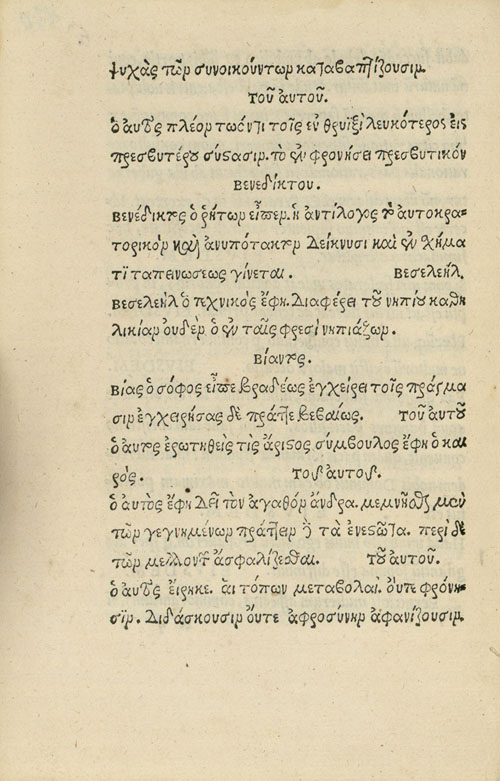 ψυχὰς τῶν συνοικούντων καταβαπτίζουσιν.
τοῦ αὐτοῦ.
ὁ αυτὸς πλέον τωόντι τοῖς ἐν θριξὶ λευκότερος εἰς
πρεσβυτέρου σύστασιν. τὸ ἐν φρονήσει πρεσβυτικόν
Βενεδίκτου.
Βενέδικτος ὁ ῥήτωρ εἶπεν. ἡ ἀντίλογος καὶ αυτοκρα-
τορικὸν καὶ ἀνυπότακτον δείκνυσι καὶ ἐν χῆμα
τι ταπεινώσεως γίνεται. Βεσελεήλ.
Βεσελεὴλ ὁ τεχνικὸς ἔφη. Διαφέρει τοῦ νηπίου καθη
λικίαν ουδὲν ὁ ἐν ταῖς φρεσὶ νηπιάζων.
Βίαντος.
Βίας ὁ σόφος εἶπε βραδέως ἐγχείρει τοῖς πράγμα
σιν ἐγχειρήσας δὲ πράττε βεβαίως. τοῦ αυτοῦ
ὁ αυτος ἐρωτηθεὶς τὶς ἄριστος σύμβουλος ἔφη ὁ και
ρὸς. τοῦ αυτοῦ.
ὁ αυτὸς ἔφη δεῖ τὸν ἀγαθὸν ἄνδρα. μεμνῆσθαι μὲν
τῶν γεγνημένων πράττειν δὲ τὰ ἐνεστῶτα. περὶ δὲ
τῶν μελλοντ ἀσφαλίζεσθαι. τοῦ αυτοῦ.
ὁ αυτὸς εἴρηκε. ἁι τόπων μεταβολαὶ. ὀυτε φρόνη-
σιν. Διδάσκουσιν ὄυτε ἀφροσύνην ἀφανίζουσιν.